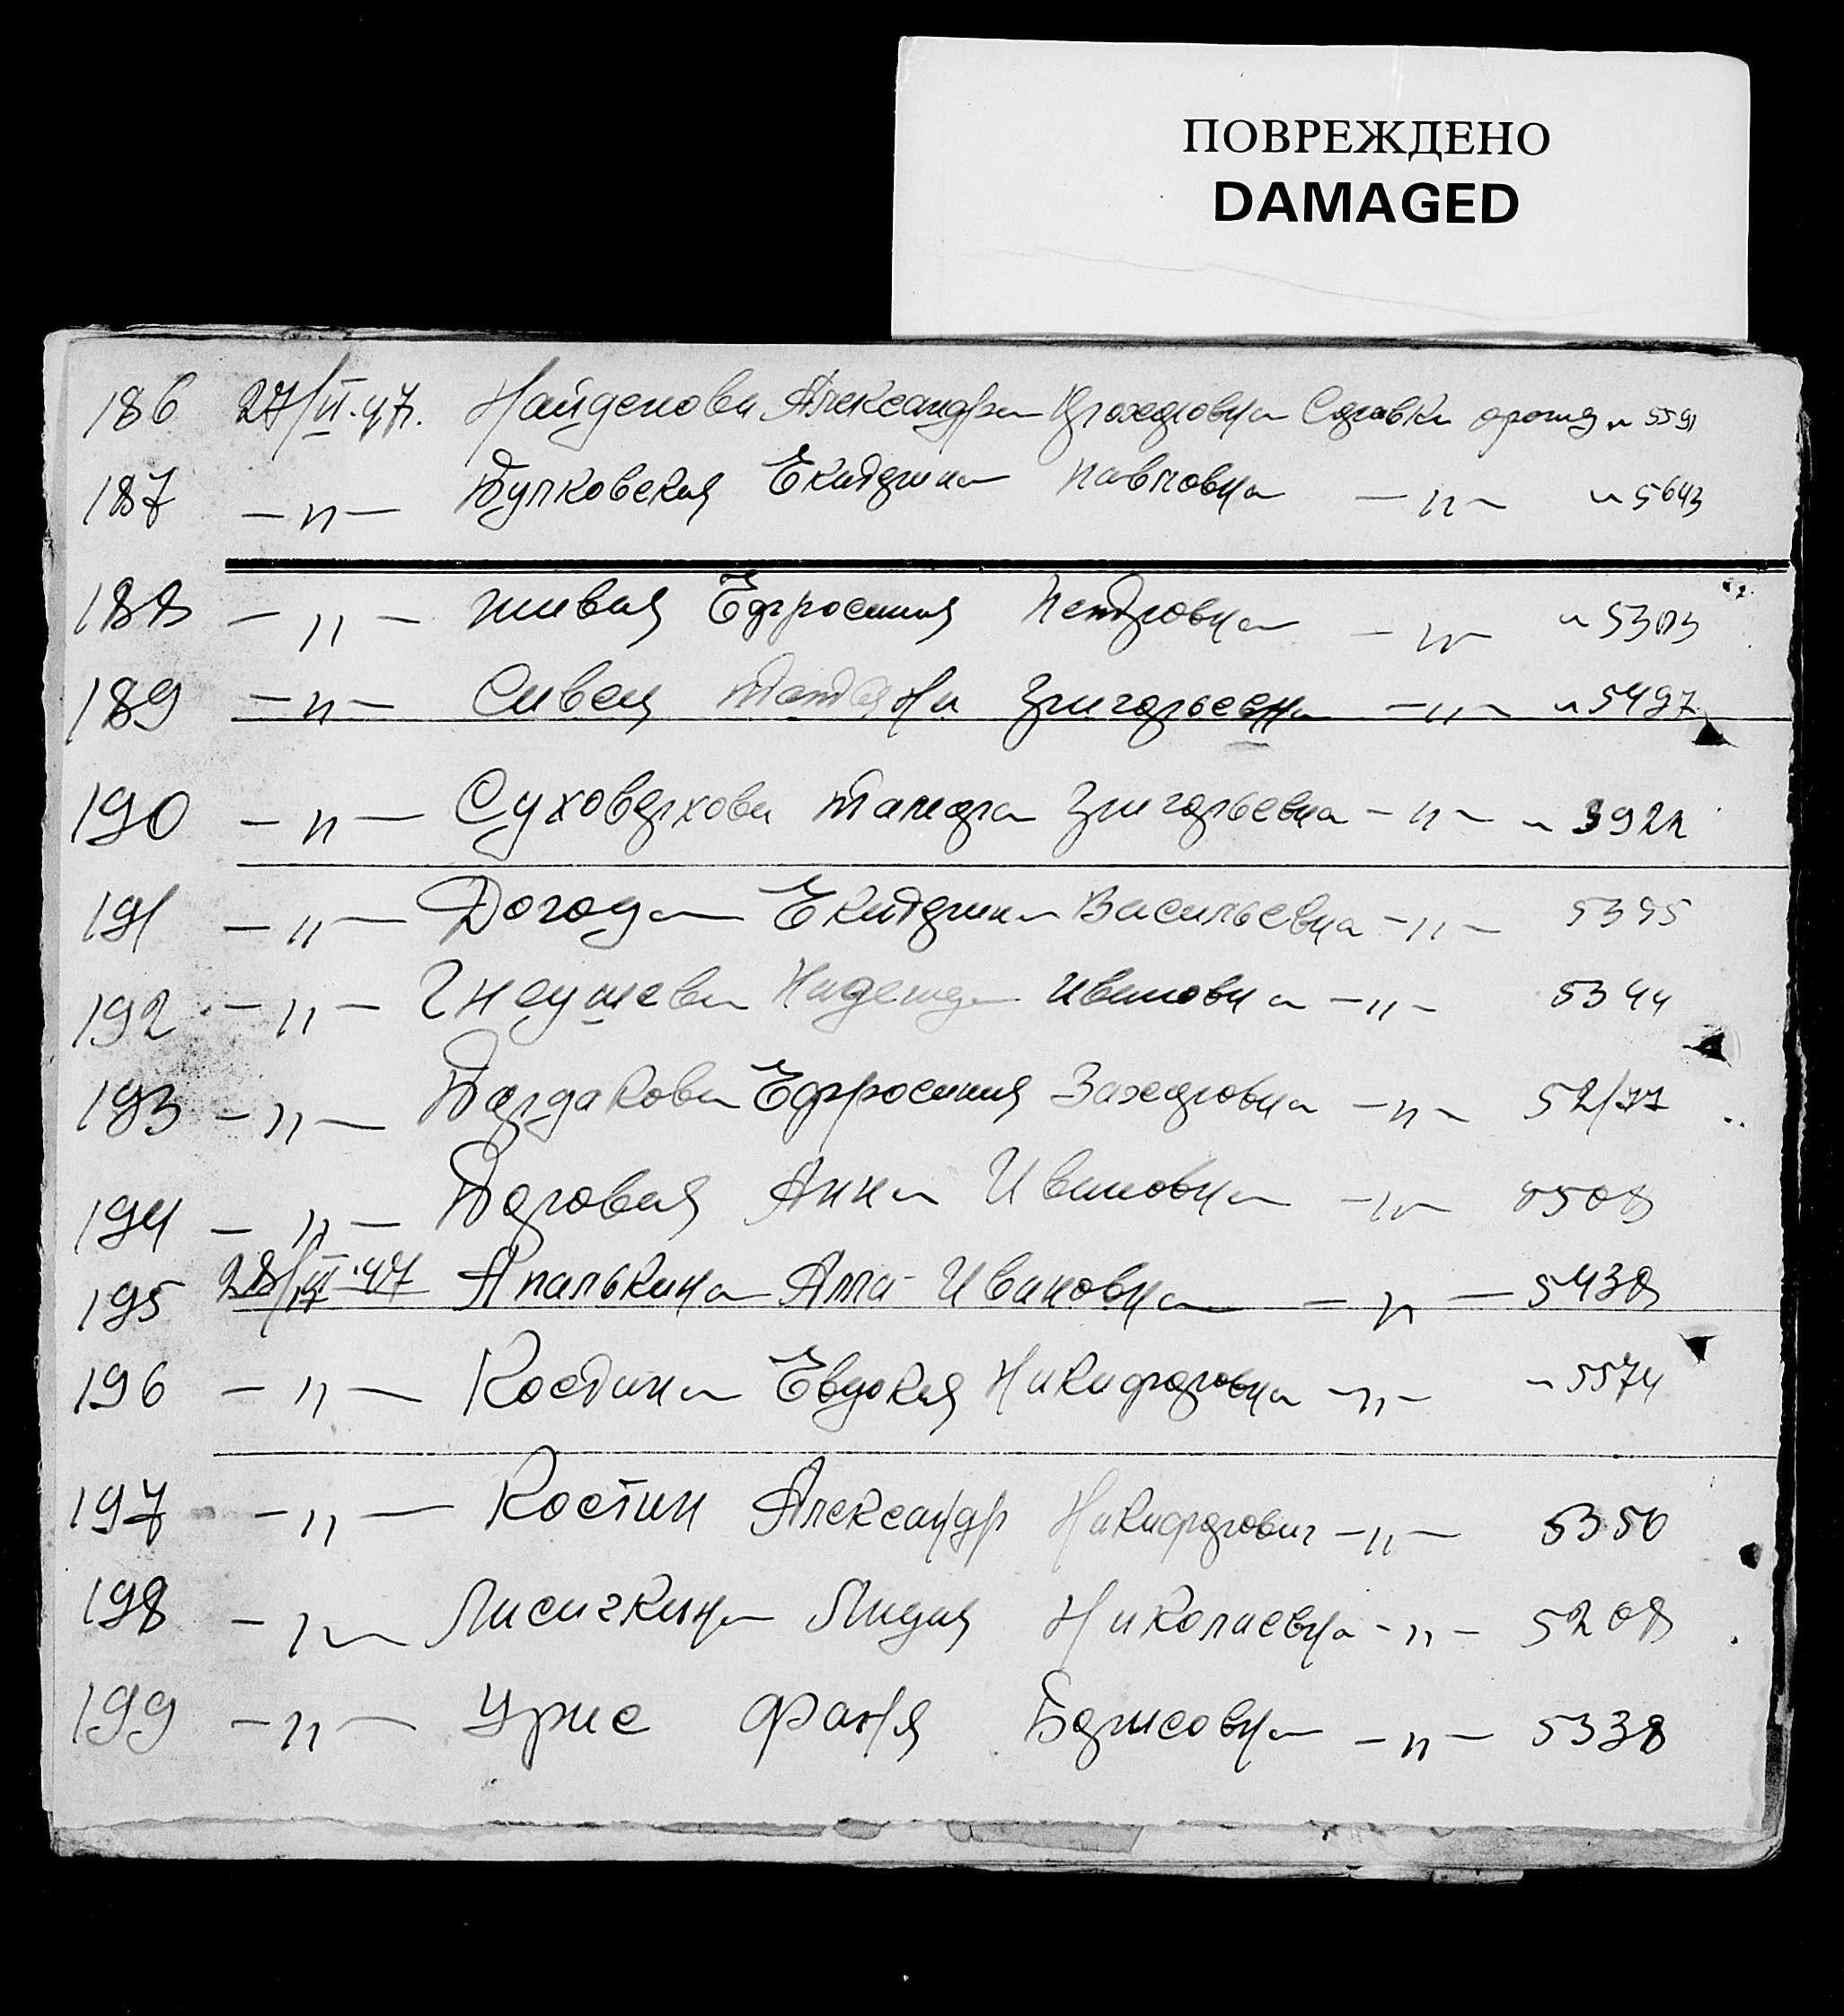 ПОВРЕЖДЕНО
DAMAGED
186 27/VI.47. Найденова Александра Прохоровна Справка о рожд. № 5591
187 —〃— Булковская Екатерина Павловна —〃— № 5643
188 —〃— Живая Ефросиния Петровна —〃— № 5303
189 —〃— Сивец Татьяна Григорьевна —〃— № 5497
190 —〃— Суховерхова Тамара Григорьевна —〃— № 3922
191 —〃— Догода Екатерина Васильевна —〃— 5395
192 —〃— Гнеушева Надежда Ивановна —〃— 5344
193 —〃— Бардакова Ефросиния Захаровна —〃— 52/77
194 —〃— Боровая Анна Ивановна —〃— 5508
195 28/VI.47 Апалькина Алла Ивановна —〃— 5438
196 —〃— Костина Евдокия Никифоровна —〃— № 5574
197 —〃— Костин Александр Никифорович —〃— 5350
198 —〃— Лисичкина Лидия Николаевна —〃— 5208
199 —〃— Урис Фаня Борисовна —〃— 5338